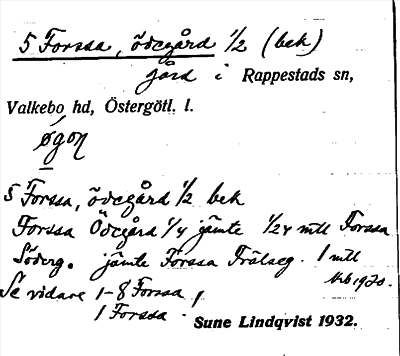 5 Forssa, ödegård 1/2 (bek)
gård i Rappestads sn,
Valkebo hd, Östergötl. l.
5 Forssa, ödegård 1/2 bek
Forssa Ödegård 1/4 jämte 1/24 mtl Forssa
Söderg. jämte Forssa Frälseg. 1 mtl
Jrb 1920.
Se vidare 1-8 Forssa
1 Forssa
Sune Lindqvist 1932.